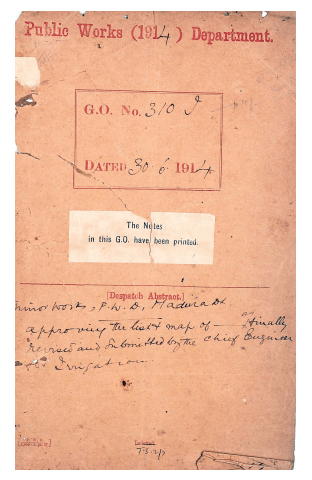 Public Works (1914) Department.
G.O. No. 310 I
DATED 30 6 1914
The Notes
in this G.O. have been printed.
[Despatch Abstract.]
minor works, P.W.D, Madura Dt
approving the list & map of — as finally
revised and submitted by the Chief Engineer
for Irrigation